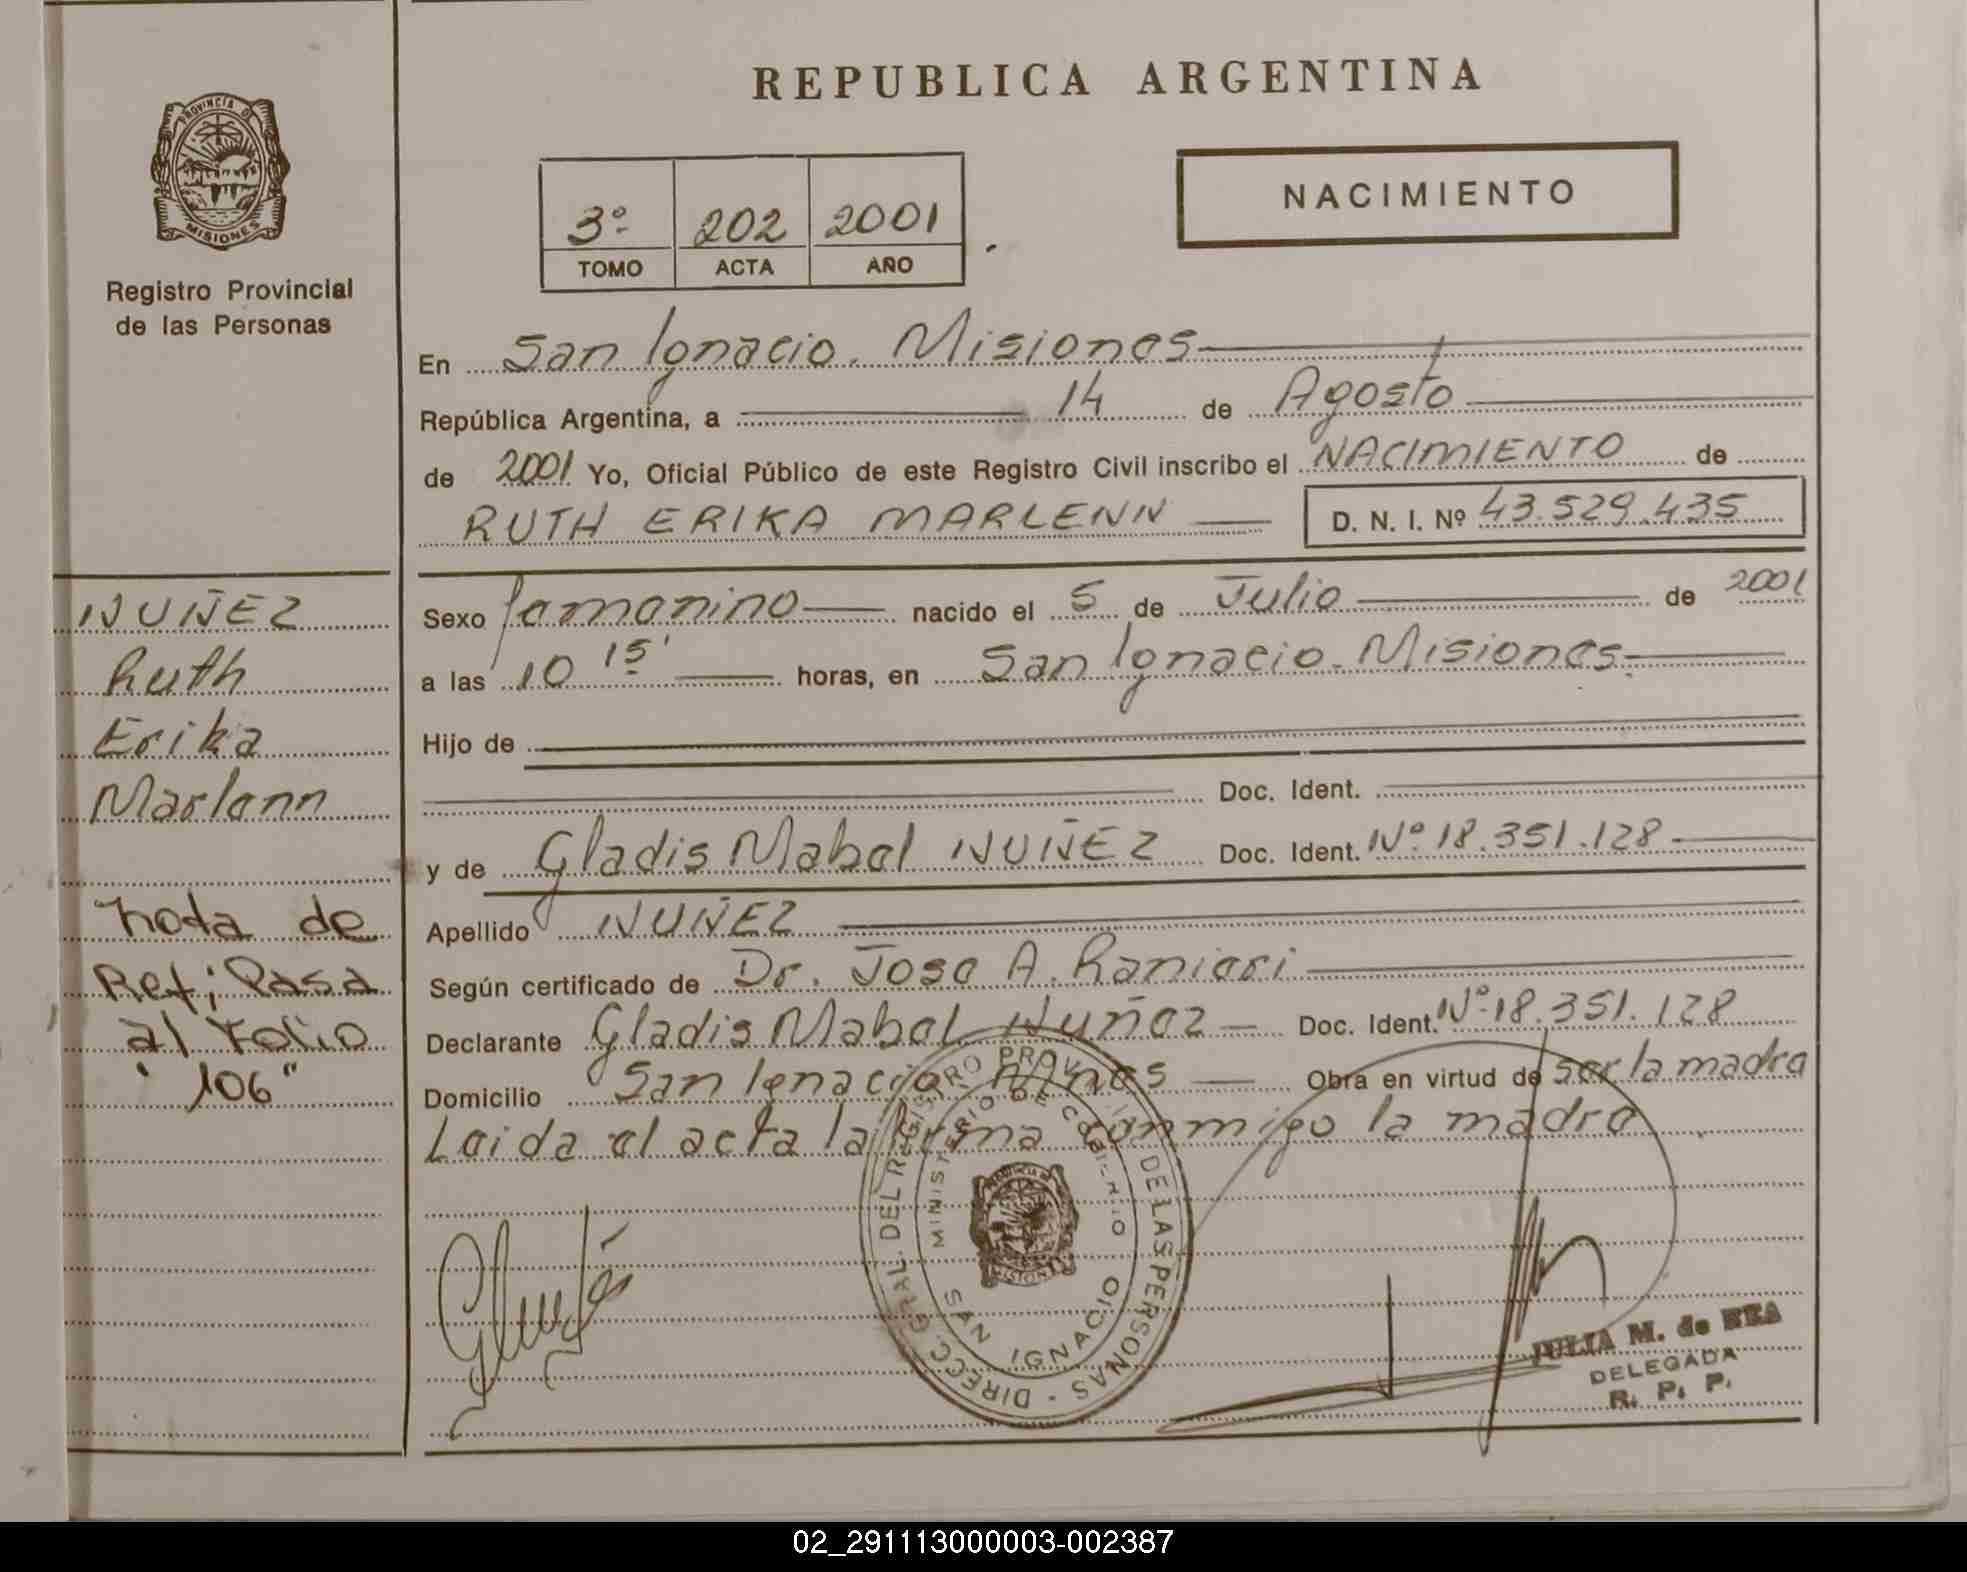 REPUBLICA ARGENTINA
PROVINCIA DE
MISIONES
Registro Provincial
de las Personas
3º 202 2001
TOMO ACTA AÑO
NACIMIENTO
En San Ignacio. Misiones
República Argentina, a 14 de Agosto
de 2001 Yo, Oficial Público de este Registro Civil inscribo el NACIMIENTO de
RUTH ERIKA MARLENN D. N. I. Nº 43.529.435
Sexo femenino nacido el 5 de Julio de 2001
a las 10 15' horas, en San Ignacio. Misiones.
Hijo de
Doc. Ident.
y de Gladis Mabel NUÑEZ Doc. Ident. Nº 18.351.128
Apellido NUÑEZ
Según certificado de Dr. Jose A. Ranieri
Declarante Gladis Mabel Nuñez Doc. Ident. Nº 18.351.128
Domicilio San Ignacio. Mnes Obra en virtud de ser la madre
Leida el acta la firma conmigo la madre
NUÑEZ
Ruth
Erika
Marlenn
Nota de
Ref; Pasa
al Folio
"106"
DIRECC. GRAL. DEL REGISTRO PROVINCIAL DE LAS PERSONAS
MINISTERIO DE GOBIERNO
SAN IGNACIO
MISIONES
JULIA M. de REA
DELEGADA
R. P. P.
02_291113000003-002387